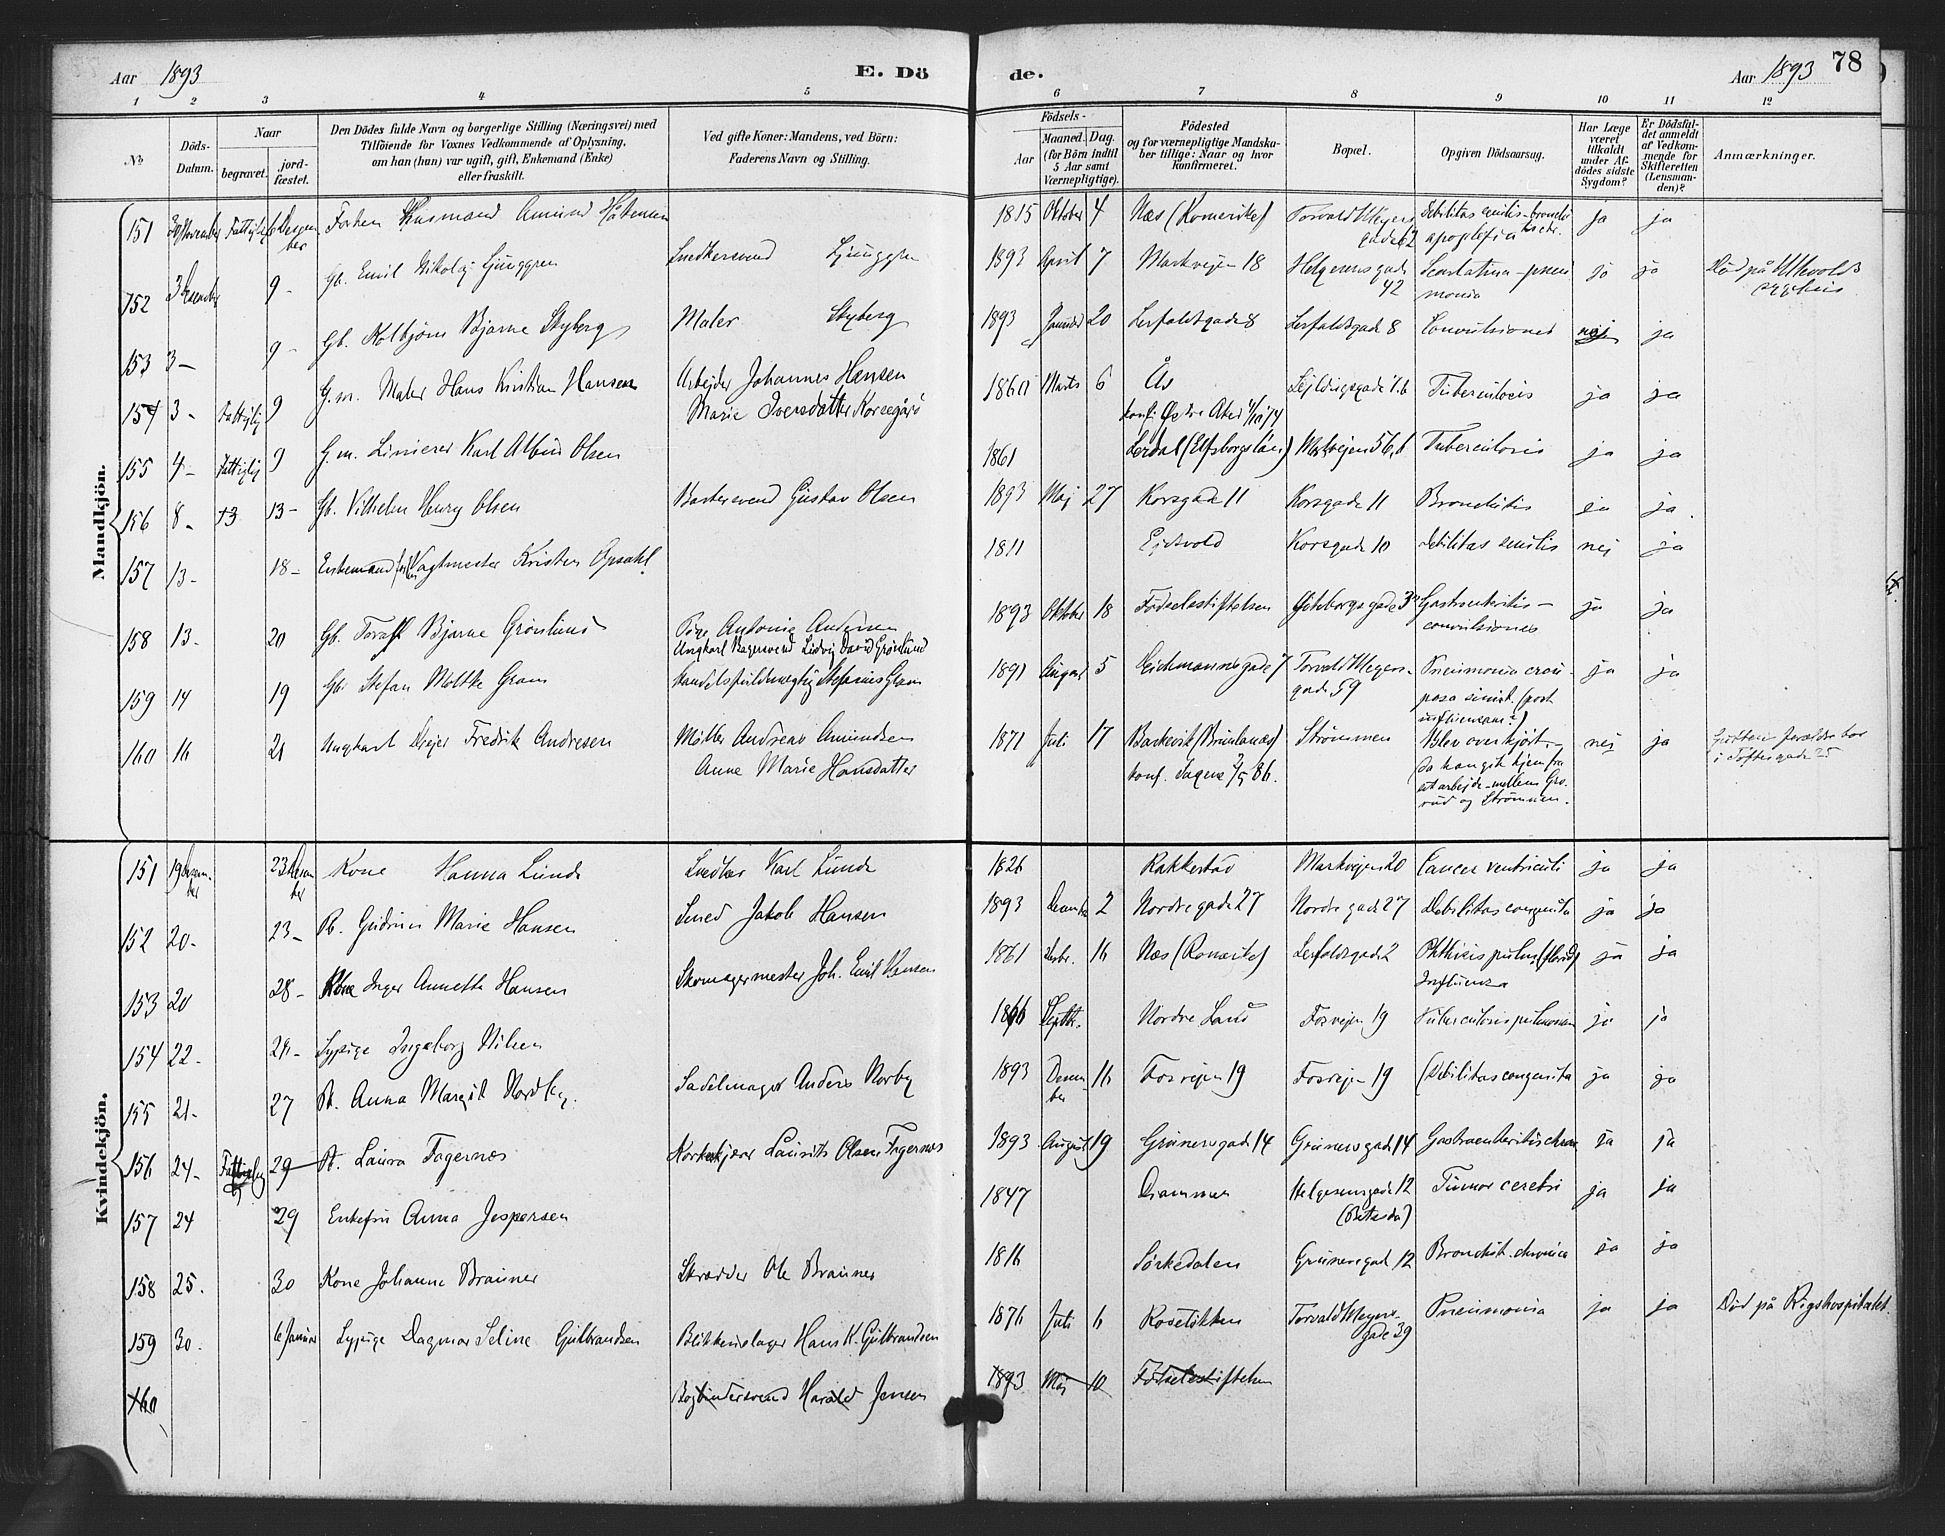 Aar 1893
E. Dö
de.
Aar 1893
78
1 2 3 4 5 6 7 8 9 10 11 12
No
Döds-
Datum.
Naar
begravet.
jord-
fæstet.
Den Dödes fulde Navn og borgerlige Stilling (Næringsvei) med
Tilföiende for Voxnes Vedkommende af Oplysning,
om han (hun) var ugift, gift, Enkemand (Enke)
eller fraskilt.
Ved gifte Koner: Mandens, ved Börn:
Faderens Navn og Stilling.
Födsels-
Aar
Maaned. Dag.
(for Börn indtil
5 Aar samt
Værnepligtige).
Födested
og for værnepligtige Mandska-
ber tillige: Naar og hvor
konfirmeret.
Bopæl.
Opgiven Dödsaarsag.
Har Læge
været
tilkaldt
under Af-
dödes sidste
Sygdom?
Er Dödsfal-
det anmeldt
af Vedkom-
mende for
Skifteretten
(Lensman-
den)?
Anmærkninger.
Mandkjön.
151 30 November Fattiglig 6 Desem-
ber
Amund 1815 Oktober 4 Næs (Romerike) Torvald Meyers
gade 62 Debilitas senilis
apoplexia ja ja
152 3 Desember 9 - Gb. Emil Nikolaj Ljunggren Snedkersvend Ljunggren 1893 April 7 Markvejen 18 Helgesensgade
42 Scarlatina - pneu
monia ja ja Død på Ullevolds
sygehus
153 3 - 9 - Gb. Kolbjørn Bjarne Styberg Maler Styberg 1893 Januar 20 Lerfaldsgade 8 Lerfaldsgade 8 Convulsiones nej ja
154 3 - Fattiglig 9 G.m. Maler Hans Kristian Hansen Arbejder Johannes Hansen
Marie Iversdatter Korsegård 1860 Marts 6 Ås
konf. Østre Aker
Tuberculosis ja ja
155 4 - Fattiglig 9 G.m. Linierer Karl Albin Olsen 1861 Lerdal (Elfsborgslän) Markvejen 56, b Tuberculosis ja ja
156 8 - +3 13 - Gb. Vilhelm Henry Olsen Barbersvend Gustav Olsen 1893 Maj 27 Korsgade 11 Korsgade 11 Bronchitis ja ja
157 13 - 18 - Enkemand Vagtmester Kristen Opsahl 1811 Ejdsvold Korsgade 10 Debilitas senilis nej ja
158 13 - 20 Gb. Toralf Bjarne Grønlund Pige Antonie Andersen
Ungkarl Bagersvend Ludvig David Grønlund 1893 Oktober 18 Fødselsstiftelsen Göteborggade 3 Gastroenteritis -
convulsiones ja ja
159 14 19 Gb. Stefan Moltke Gram Handelsfuldmægtig Stefanus Gram 1891 August 5 Eichmannsgade 7 Torvald Meyers-
gade 59 Pneumonia crou-
posa sinist. (post
influensam?) ja ja
160 16 21 Ungkarl Drejer Fredrik Andresen Møller Andreas Amundsen
Anne Marie Hansdatter 1871 Juli 17 Barkevik (Brunlanæs)
konf. 86. Strømmen Blev overkjørt,
da han gik hjem fra
arbejde mellem Gro-
rud og Strømmen. nej ja
i Toftesgade 25
Kvindekjön.
151 19 Desem-
ber 23 Desem
ber Kone Hanna Lunde Snedker Karl Lunde 1826 Rakkestad Markvejen 20 Cancer ventriculi ja ja
152 20 - 23 - Pb. Gudrun Marie Hansen Smed Jakob Hansen 1893 Desember 2 Nordregade 27 Nordregade 27 Debilitas congenita ja ja
153 20 28 - Kone Inger Annette Hansen Skomagermester Joh. Emil Hansen 1861 16 Næs (Romerike) Lerfaldsgade 2 Phthisis pulm. (florid)
Influensa ja ja
154 22 - 29 - Sypige Ingeborg Nilsen 1866 Septbr. Nordre Land Fosvejen 19 Tuberculosis pulmonum ja ja
155 21 - 27 Pb. Anna Margit Nordby Sadelmager Anders Norby 1893 Desem-
ber 16 Fosvejen 19 Fosvejen 19 Debilitas congenita ja ja
156 24 - Fattiglig 29 Pb. Laura Fagernæs Laurits Olsen Fagernæs 1893 August 19 Grünersgade 14 Grünersgade 14 Gastroenteritis chron ja ja
157 24 29 Enkefru Anna Jespersen 1847 Drammen Helgesensgade 12
(Betesda) Tumor cerebri ja ja
158 25. 30 Kone Johanne Brauner Skrædder Ole Brauner 1816 Sørkedalen Grünersgade 12 Bronchit. chronica ja ja
159 30. 6 Januar Sypige Dagmar Seline Gulbrandsen Blikkenslager Hans K. Gulbrandsen 1876 Juli 6 Roseløkken Torvald Meyers-
gade 39 Pneumonia ja ja Død på Rigshospitalet.
160 Bogbindersvend Harald Jensen 1893 Maj 10 Fødselsstiftelsen